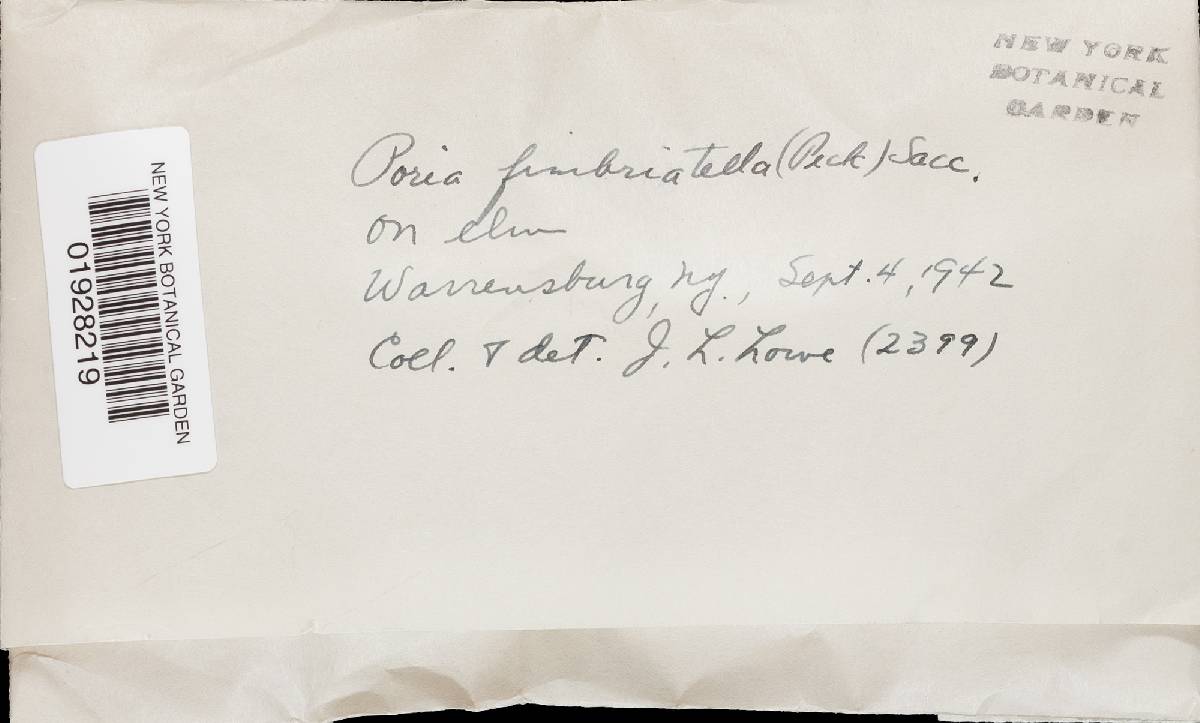 NEW YORK
BOTANICAL
GARDEN
Poria fimbriatella (Peck) Sacc.
on elm
Warrensburg, N.Y., Sept. 4, 1942
Coll. & det. J. L. Lowe (2399)
NEW YORK BOTANICAL GARDEN
01928219